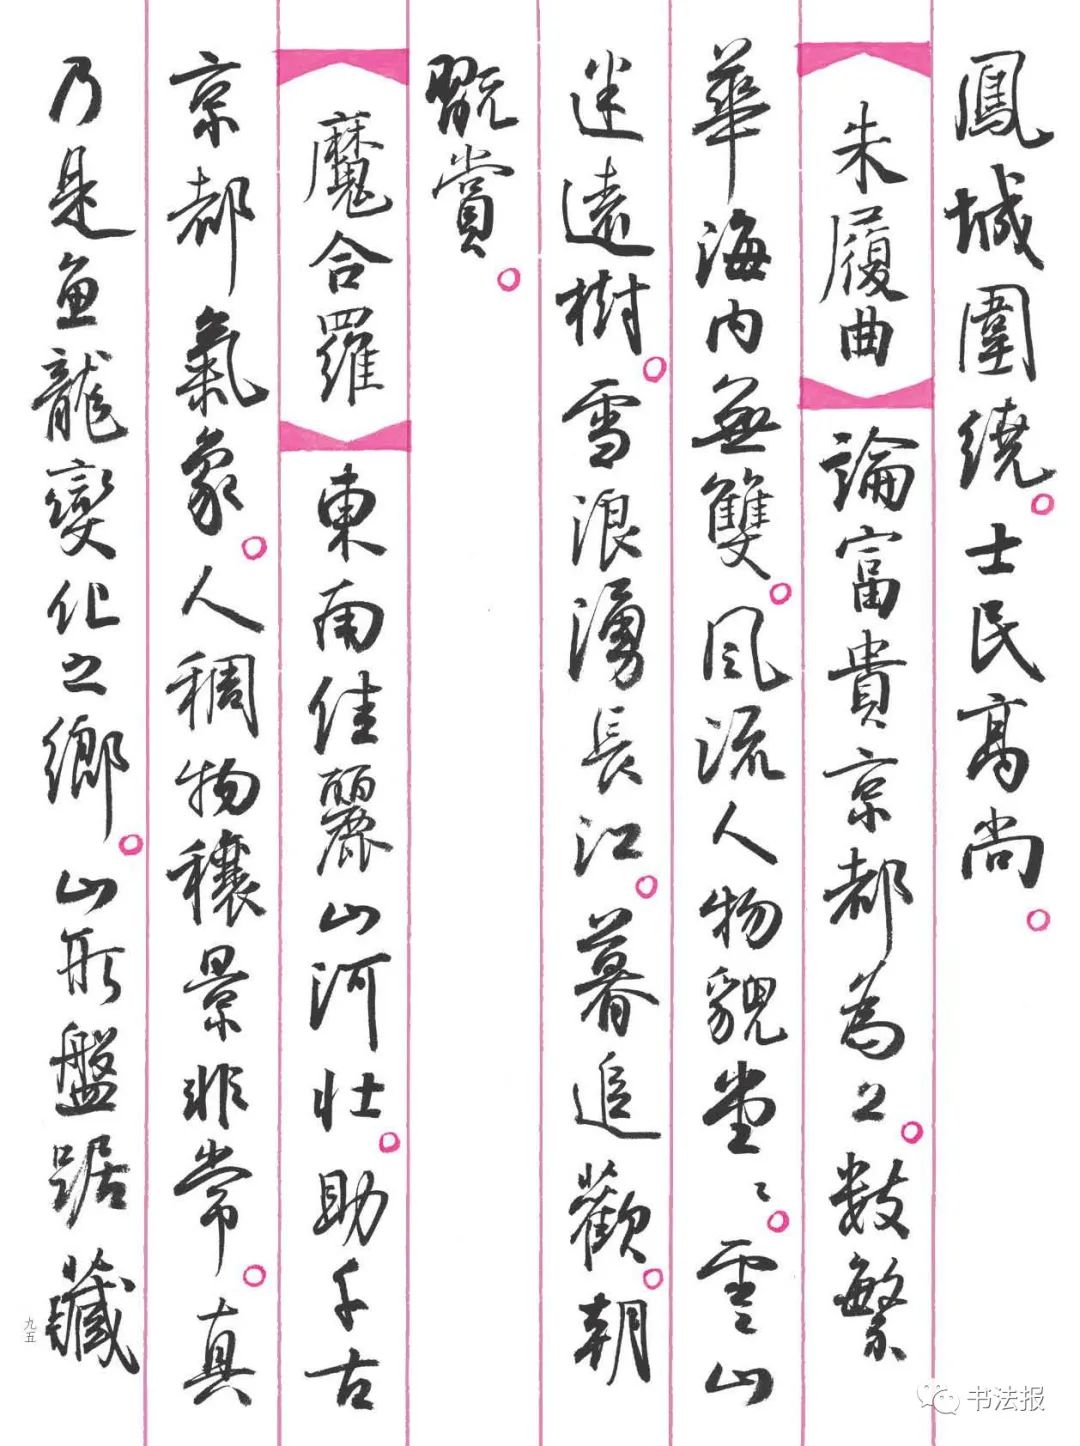 鳳城圍繞。士民高尚。
朱履曲 論富貴京都為上。数繁
華海内無雙。風流人物貌堂〻。雲山
迷遠樹。雪浪湧長江。暮追歡。朝
翫賞。
魔合羅 東南佳麗山河壮。助千古
京都氣象。人稠物穰景非常。真
乃是魚龍變化之鄉。山形盤踞藏
九五
书法报